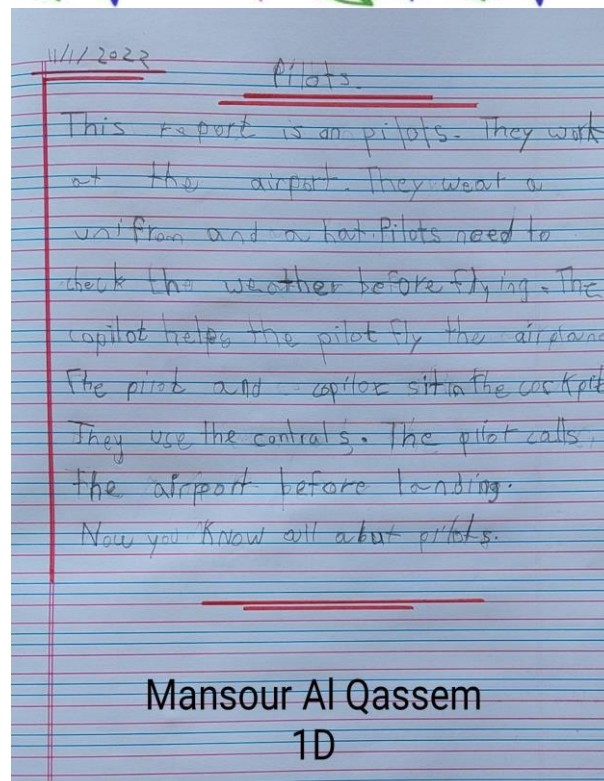 11/1/2022
Pilots.
This report is on pilots. They work
at the airport. They wear a
unifrom and a hat. Pilots need to
check the weather before flying. The
copilot helps the pilot fly the airplane
The pilot and copilot sit in the cockpit
They use the contrals. The pilot calls
the airport before landing.
Now you know all abut pilots.
Mansour Al Qassem
1D